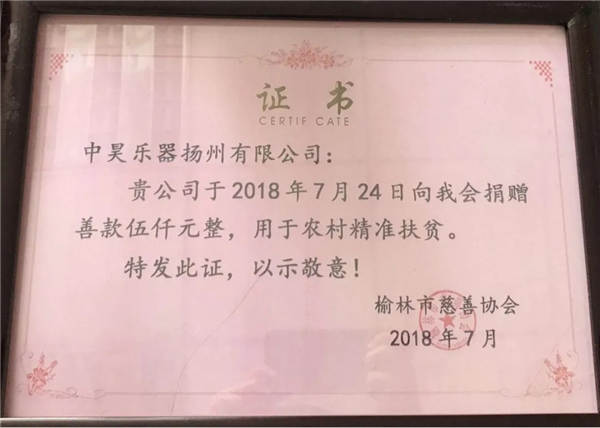 证书
CERTIF CATE
中昊乐器扬州有限公司：
贵公司于2018年7月24日向我会捐赠
善款伍仟元整，用于农村精准扶贫。
特发此证，以示敬意！
榆林市慈善协会
2018年7月